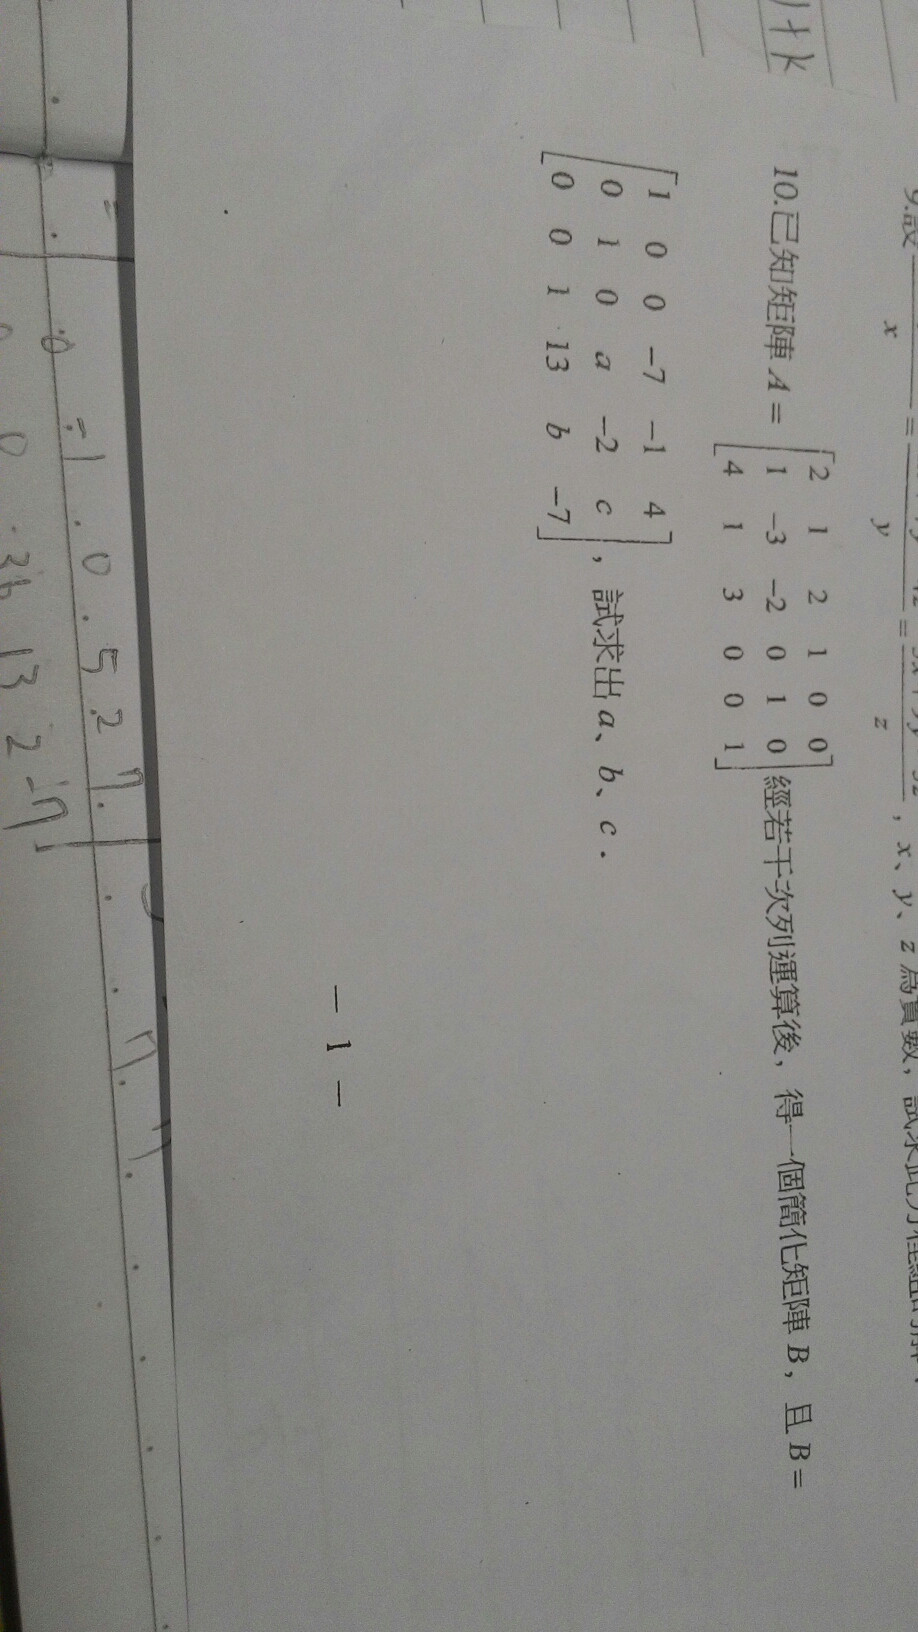 1+k
9.設
x
y
z
，x、y、z 為實數，試求此方程組的解．
10.已知矩陣 A =
2 1 2 1 0 0
1 -3 -2 0 1 0
4 1 3 0 0 1
經若干次列運算後，得一個簡化矩陣 B，且 B =
1 0 0 -7 -1 4
0 1 0 a -2 c
0 0 1 13 b -7
，試求出 a、b、c．
— 1 —
-1 0 5 2 7
0 13 2 -7